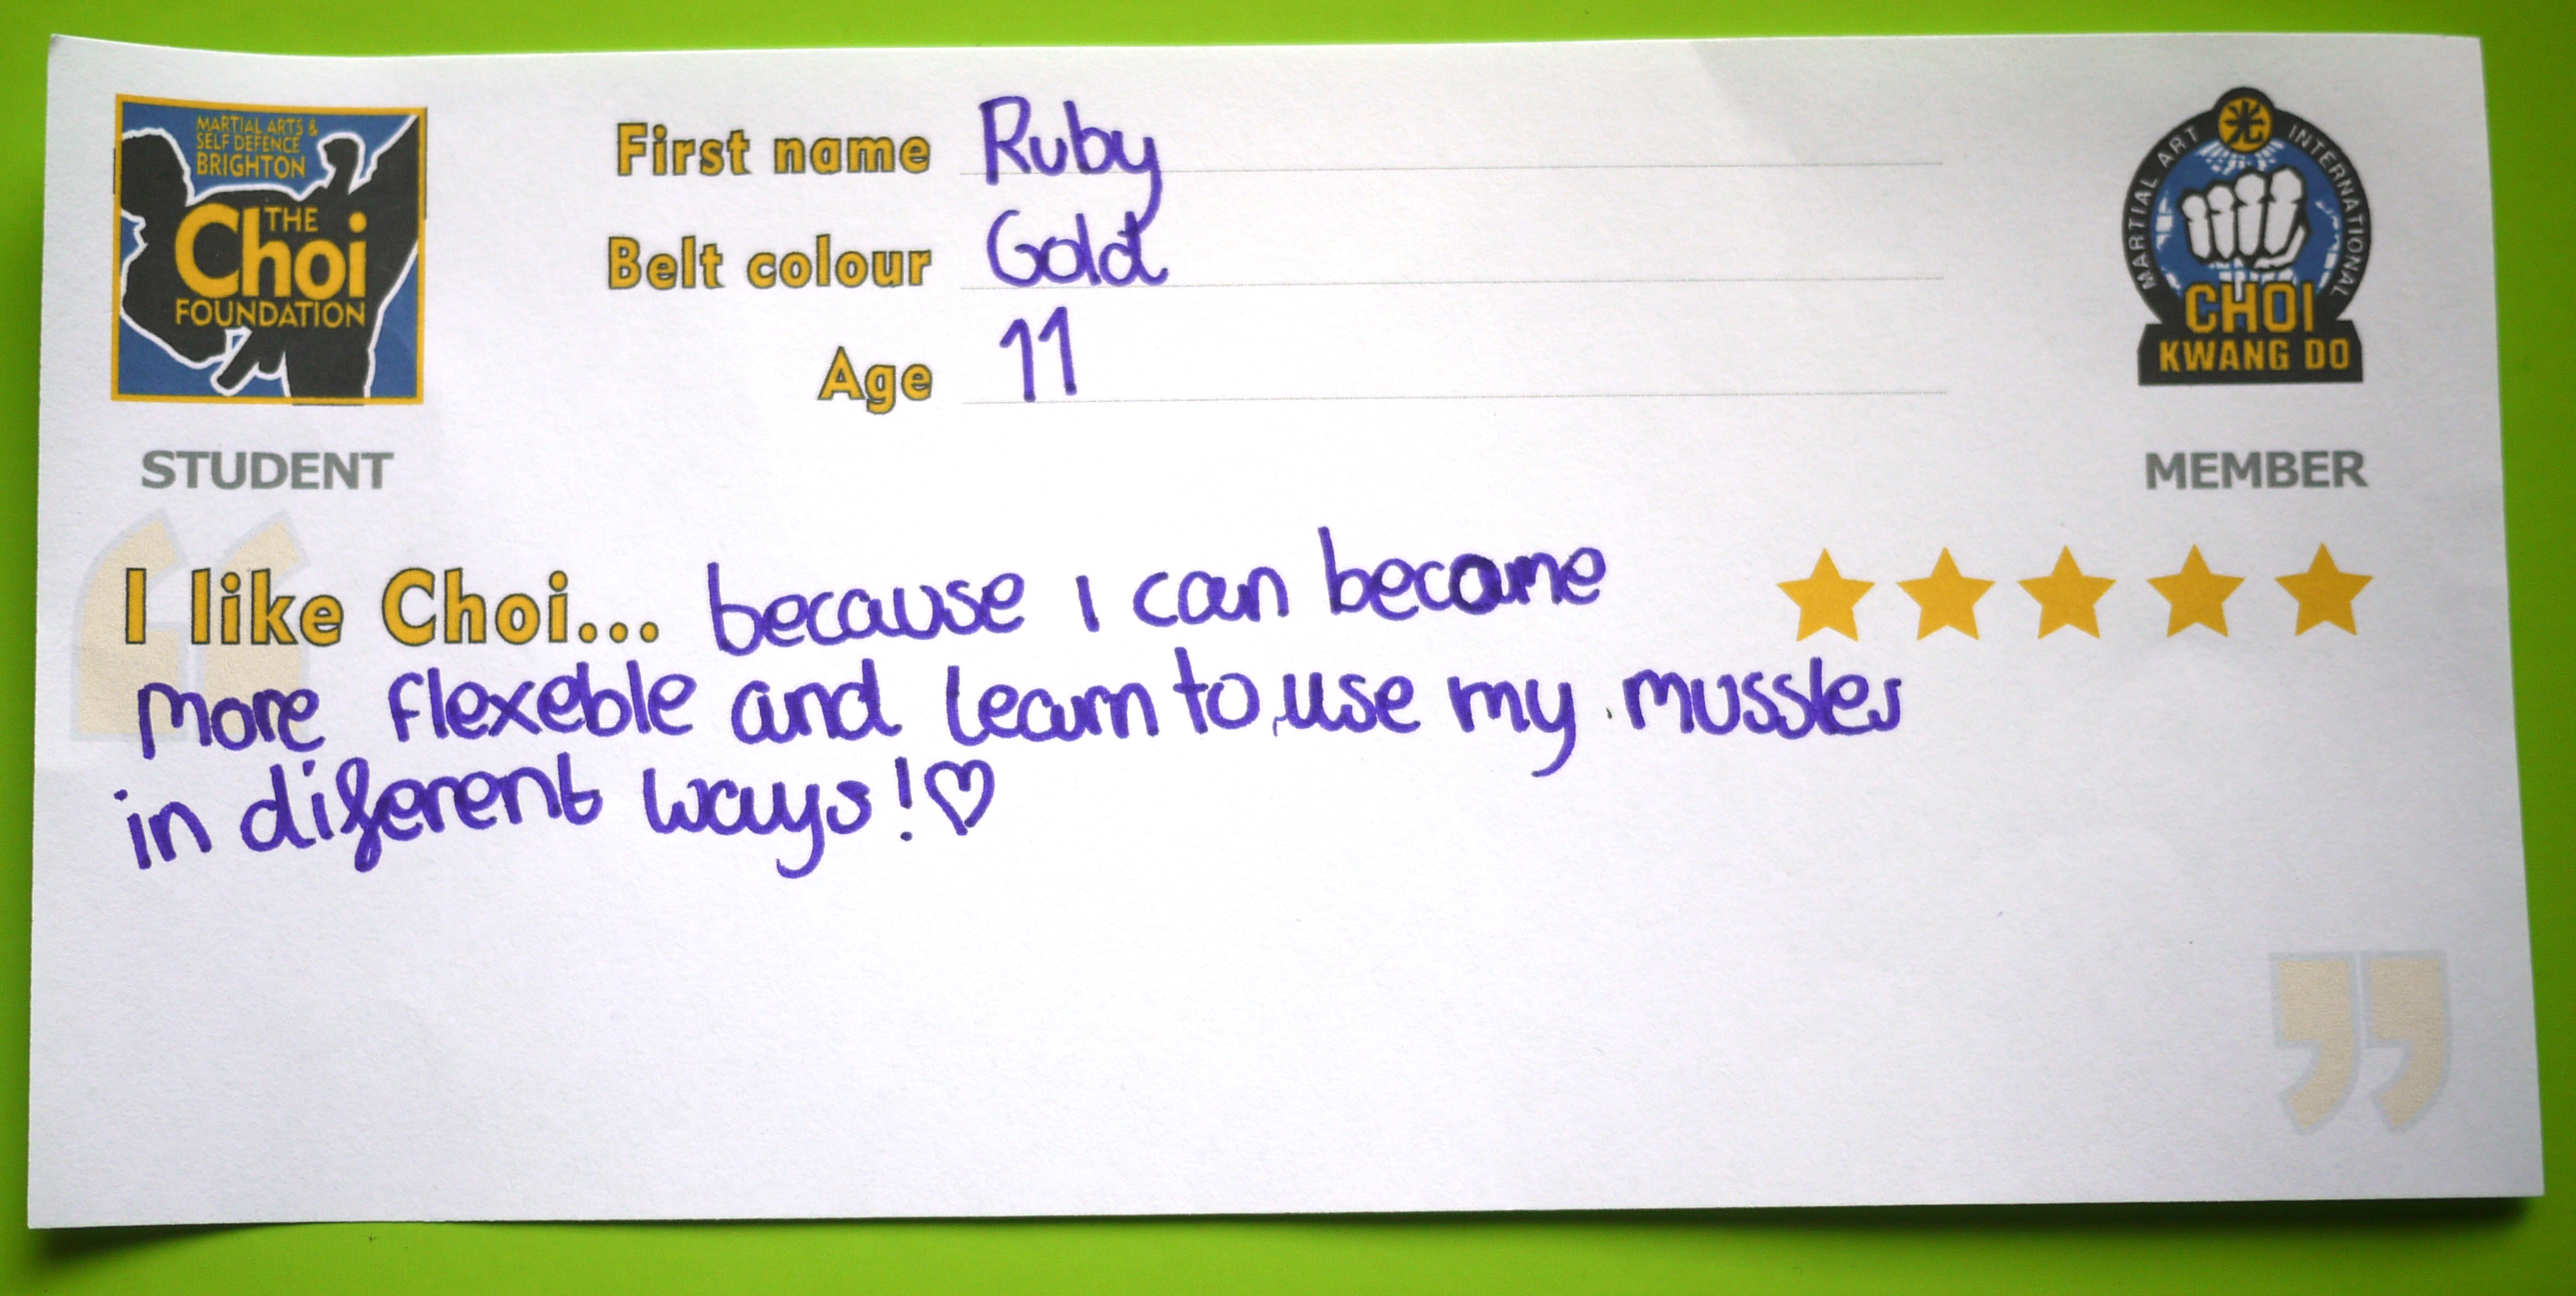 MARTIAL ARTS &
SELF DEFENCE
BRIGHTON
THE
Choi
FOUNDATION
STUDENT
First name Ruby
Belt colour Gold
Age 11
MARTIAL ART INTERNATIONAL
CHOI
KWANG DO
MEMBER
“
I like Choi... because i can become
more flexeble and learn to use my mussles
in diferent ways!♡
”